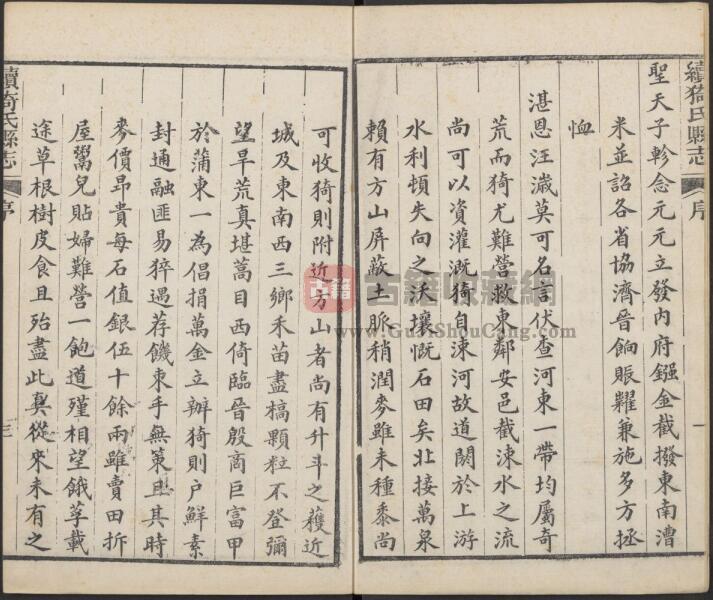 續猗氏縣志
序
一
聖天子軫念元元立發内府鏹金截撥東南漕
米並詔各省協濟晉餉賑糶兼施多方拯
恤
湛恩汪濊莫可名言伏查河東一帶均屬奇
荒而猗尤難營救東鄰安邑截涑水之流
尚可以資灌溉猗自涑河故道閼於上游
水利頓失向之沃壤慨石田矣北接萬泉
賴有方山屏蔽土脈稍潤麥雖未種黍尚
可收猗則附近方山者尚有升斗之穫近
城及東南西三鄉禾苗盡槁顆粒不登彌
望旱荒真堪蒿目西倚臨晉殷商巨富甲
於蒲東一為倡捐萬金立辦猗則户鮮素
封通融匪易猝遇荐饑束手無策且其時
麥價昂貴每石值銀伍十餘兩雖賣田拆
屋鬻兒貼婦難營一飽道殣相望餓莩載
途草根樹皮食且殆盡此真從來未有之
續猗氏縣志
序
三
古籍收藏網
www.GuJiShouCang.com